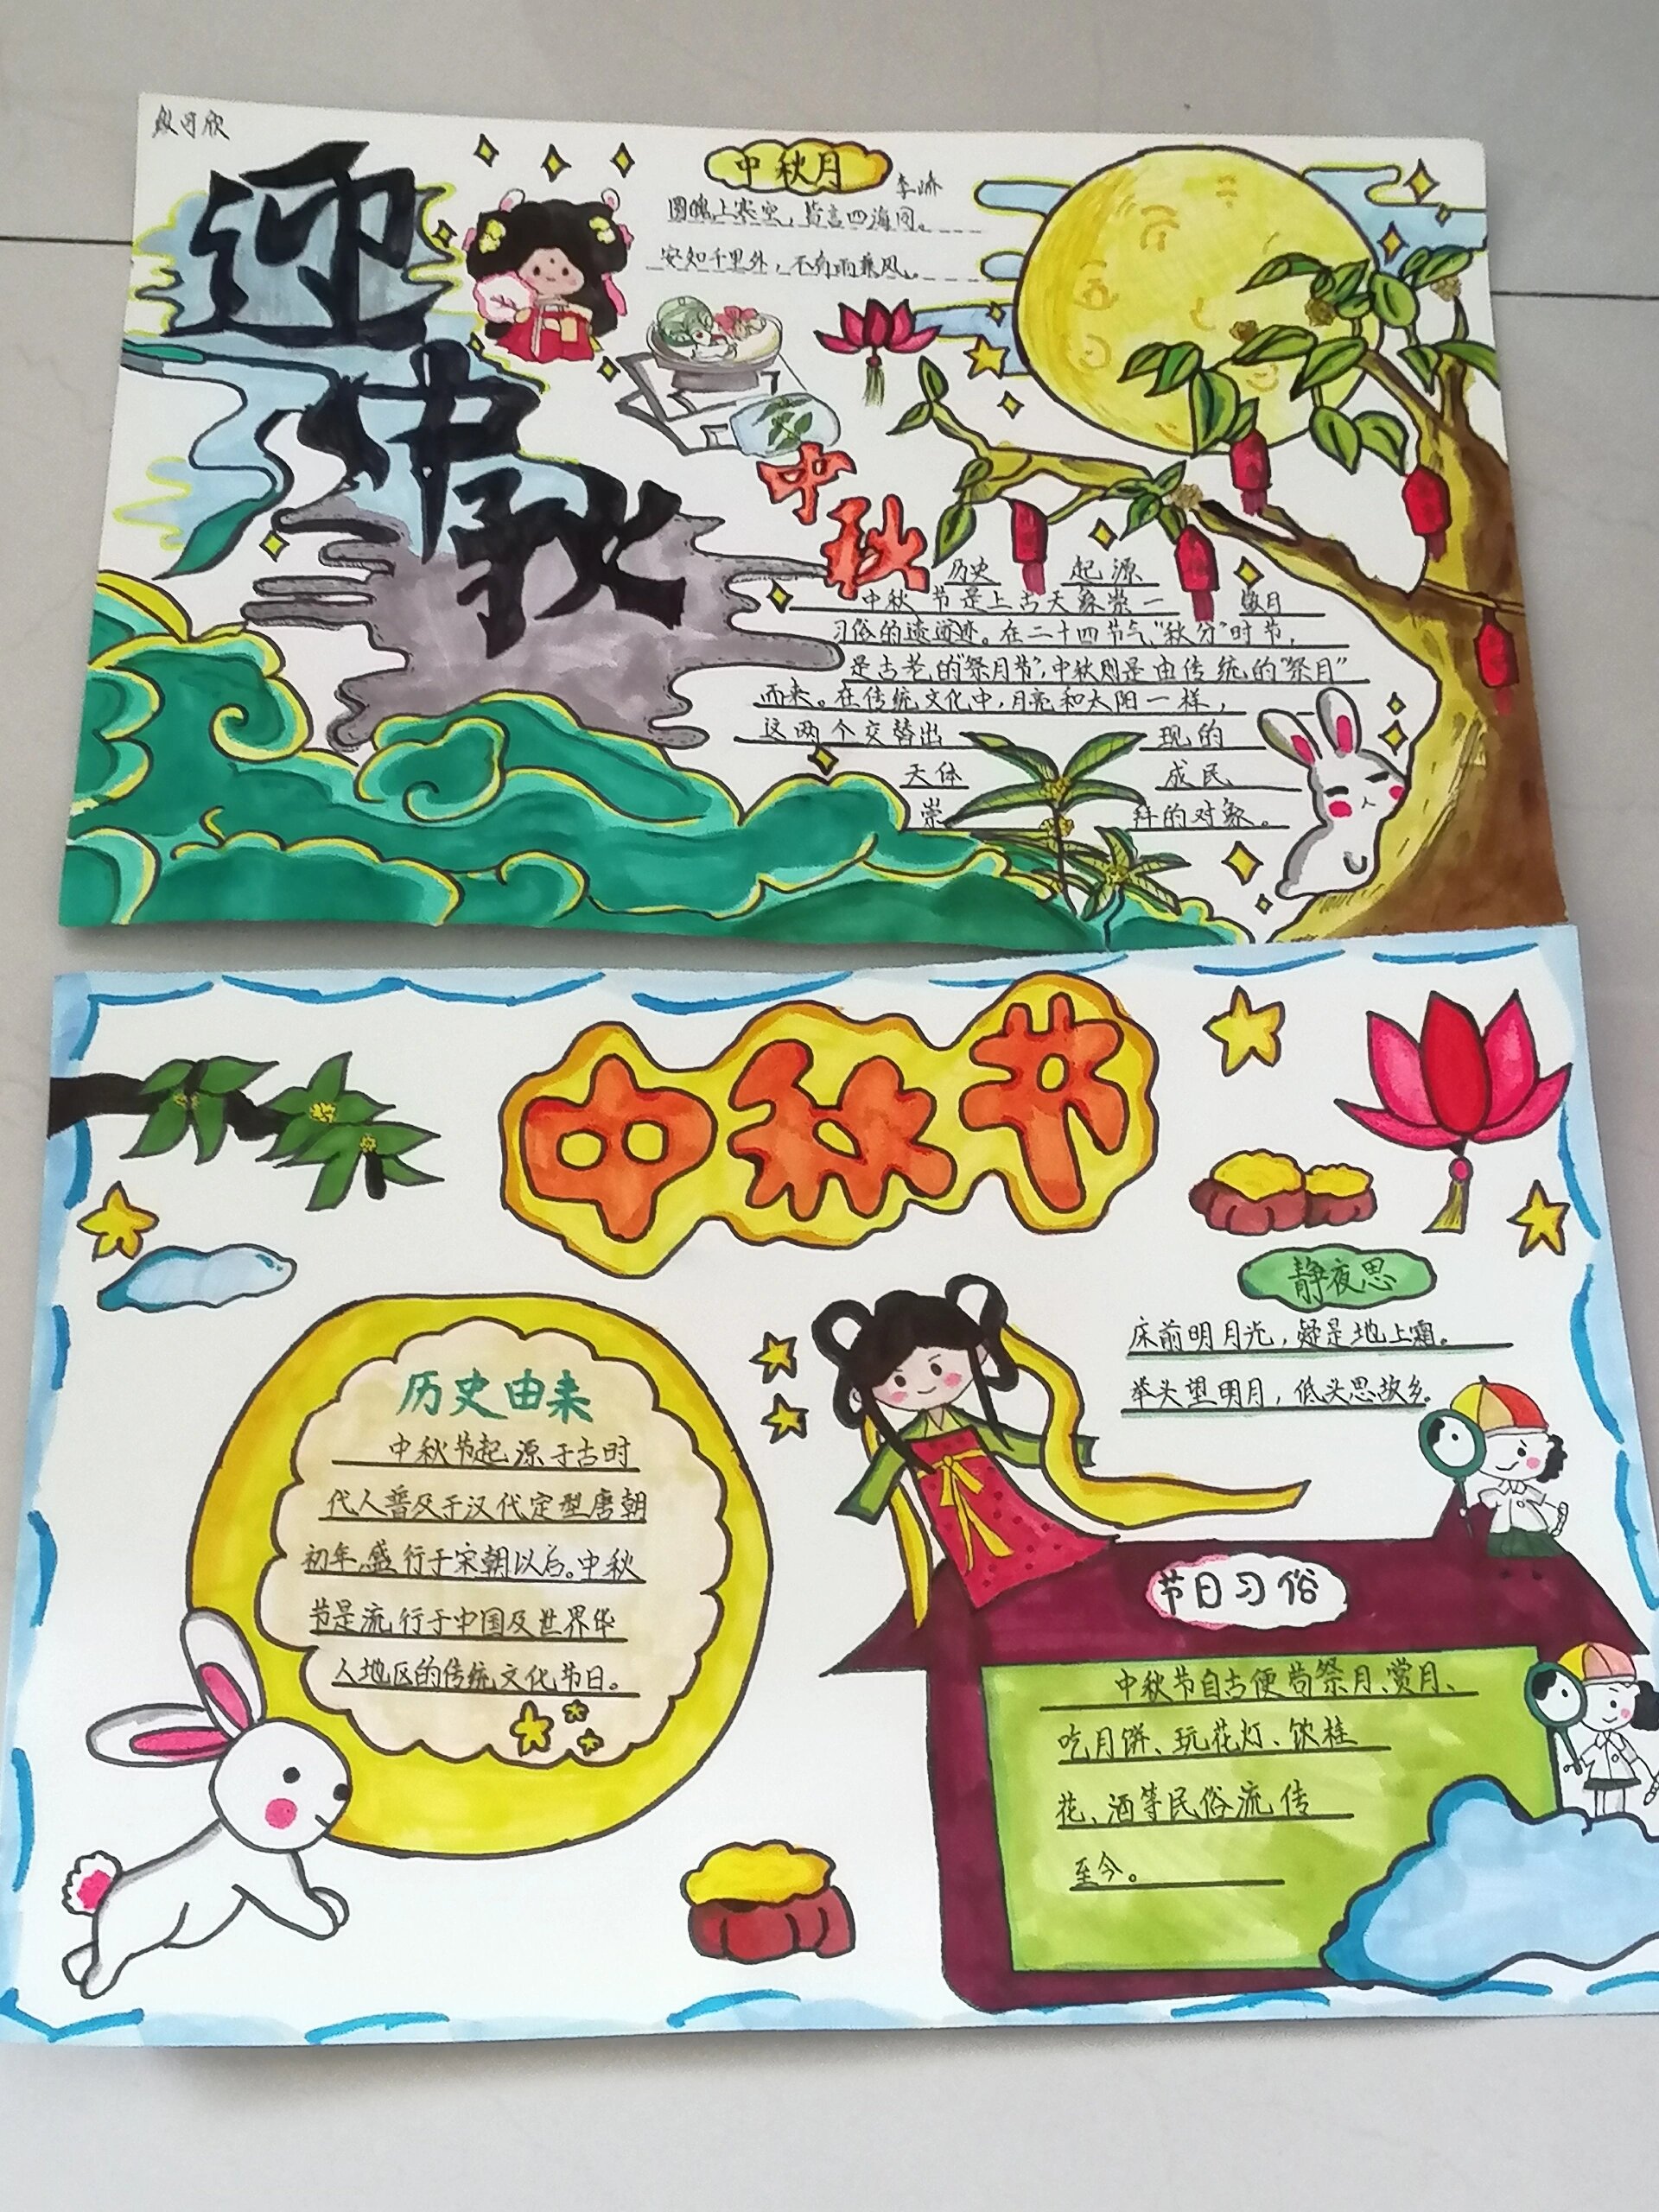 迎中秋
中秋月
李峤
圆魄上寒空，皆言四海同。
安知千里外，不有雨兼风。
中秋
历史 起源
中秋 节是上古天象崇一
习俗的遗 迹。在二十四节气“秋分”时节，
是古老的“祭月节”，中秋则是由传统的“祭月”
而来。在传统文化中，月亮和太阳一样，
这两个交替出 现的
天体 成民
崇 拜的对象。
中秋节
静夜思
床前明月光，疑是地上霜。
举头望明月，低头思故乡。
历史由来
中秋节起源于古时
代人普及于汉代定型唐朝
初年，盛行于宋朝以后。中秋
节是流行于中国及世界华
人地区的传统文化节日。
节日习俗
中秋节自古便 祭月、赏月、
吃月饼、玩花灯、饮桂
花、酒等民俗流传
至今。